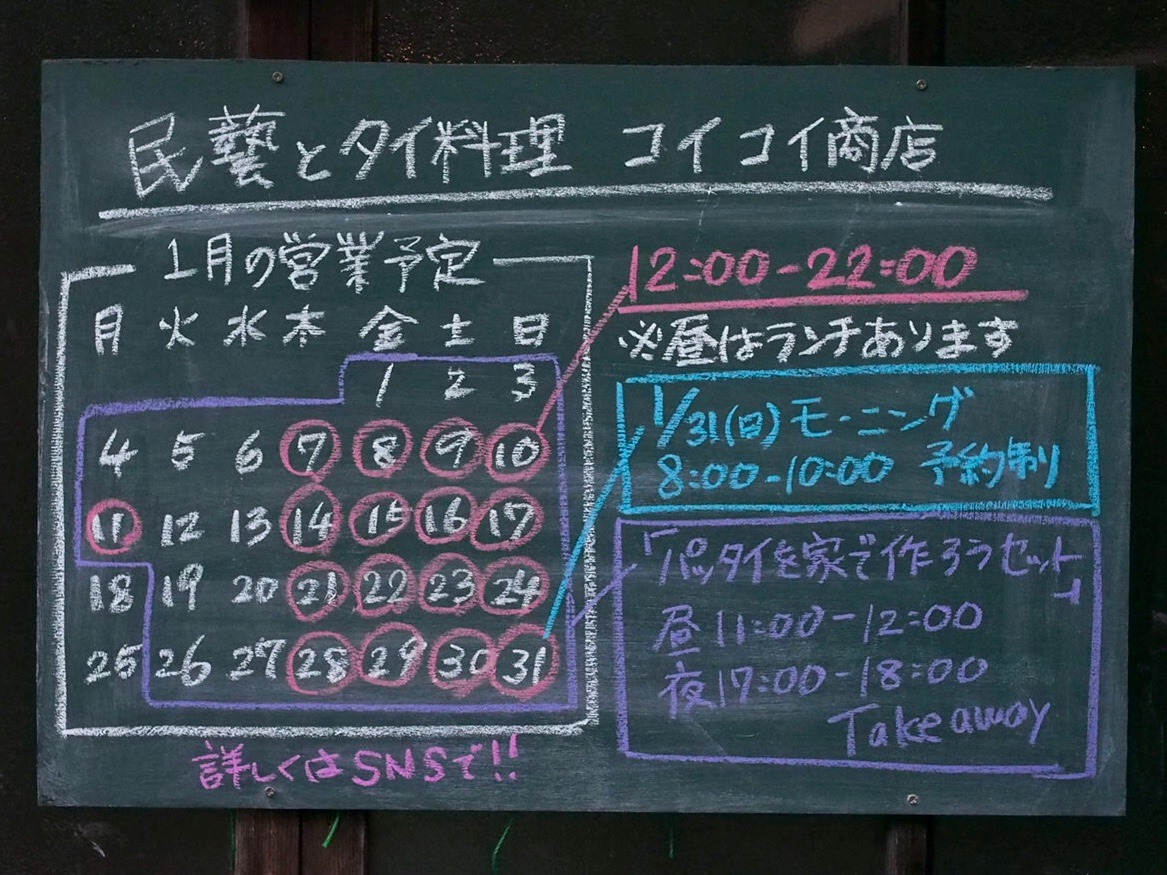 民藝とタイ料理 コイコイ商店
1月の営業予定
月 火 水 木 金 土 日
1 2 3
4 5 6 7 8 9 10
11 12 13 14 15 16 17
18 19 20 21 22 23 24
25 26 27 28 29 30 31
詳しくはSNSで!!
12:00-22:00
※昼はランチあります
1/31(日)モーニング
8:00-10:00 予約制
「パッタイを家で作ろうセット」
昼11:00-12:00
夜17:00-18:00
Takeaway